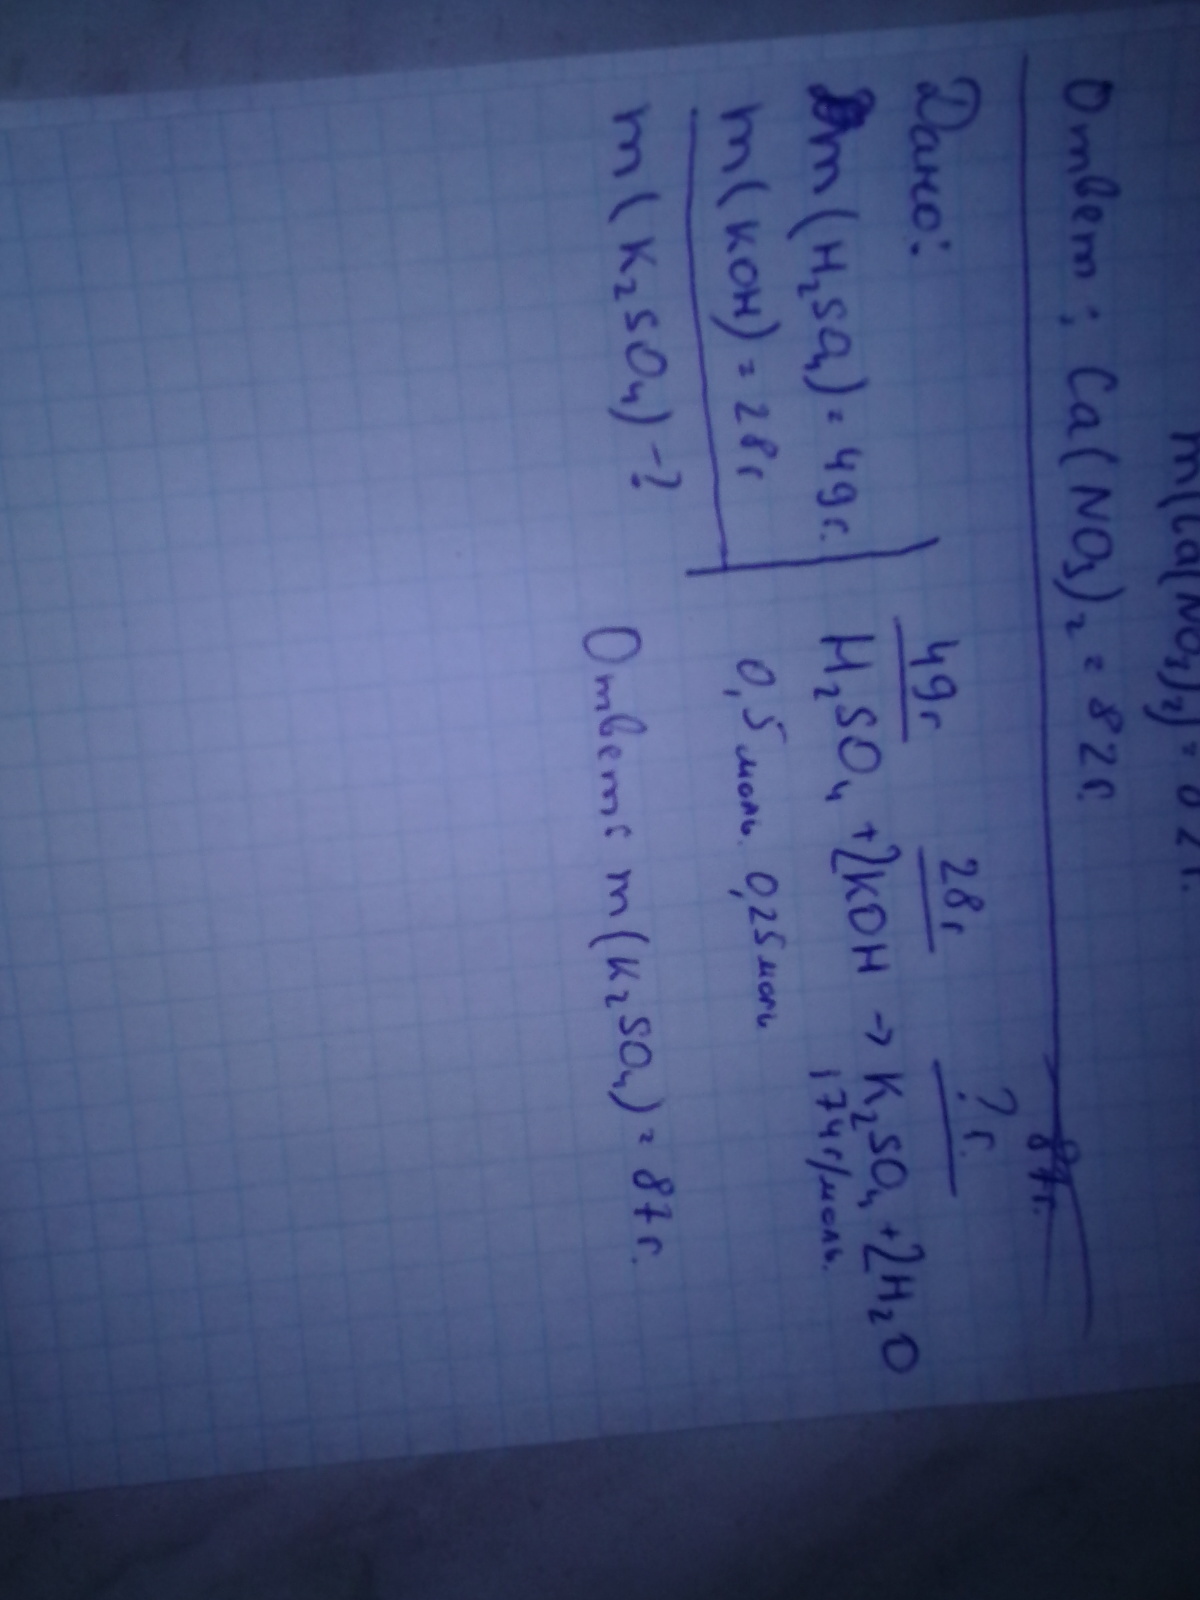 m(Ca(NO₃)₂) = 82г.
Ответ: Ca(NO₃)₂ = 82г.
Дано:
m(H₂SO₄) = 49г.
m(KOH) = 28г
m(K₂SO₄) - ?
87г.
49г 28г ?г.
H₂SO₄ + 2KOH → K₂SO₄ + 2H₂O
0,5 моль. 0,25 моль 174г/моль.
Ответ: m(K₂SO₄) = 87г.